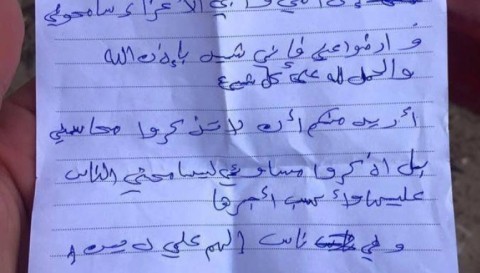 أمي وأبي الأعزاء سامحوني
وارضوا عني فإني شهيد بإذن الله
والحمد لله على كل شيء
أريد منكم أن لا تذكروا محاسني
بل اذكروا مساوئي ليسامحني الناس
عليها وأكسب أجرها
وفي ناس الهم علي